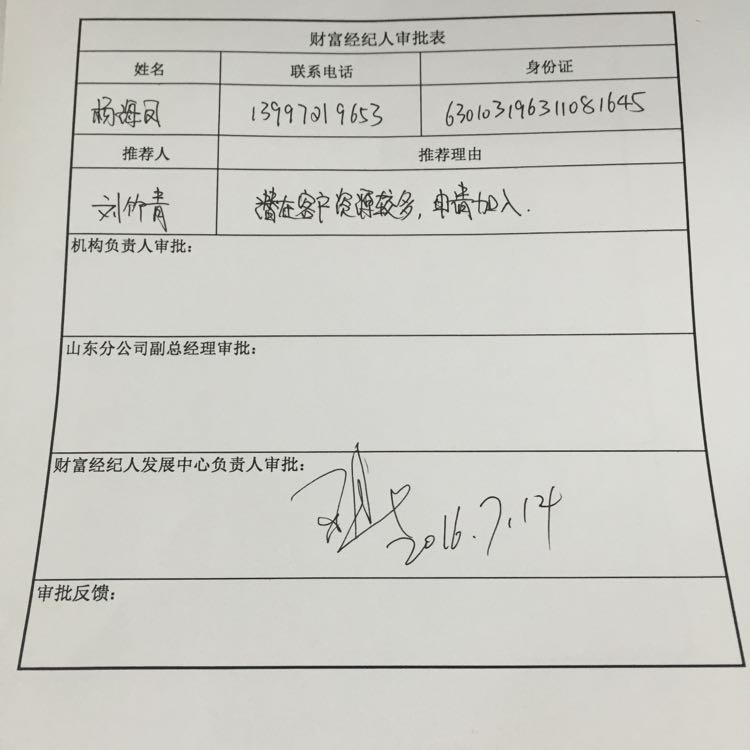 财富经纪人审批表
姓名 联系电话 身份证
杨海凤 13997219653 630103196311081645
推荐人 推荐理由
刘竹青 潜在客户资源较多，申请加入.
机构负责人审批：
山东分公司副总经理审批：
财富经纪人发展中心负责人审批：
2016.7.14
审批反馈：